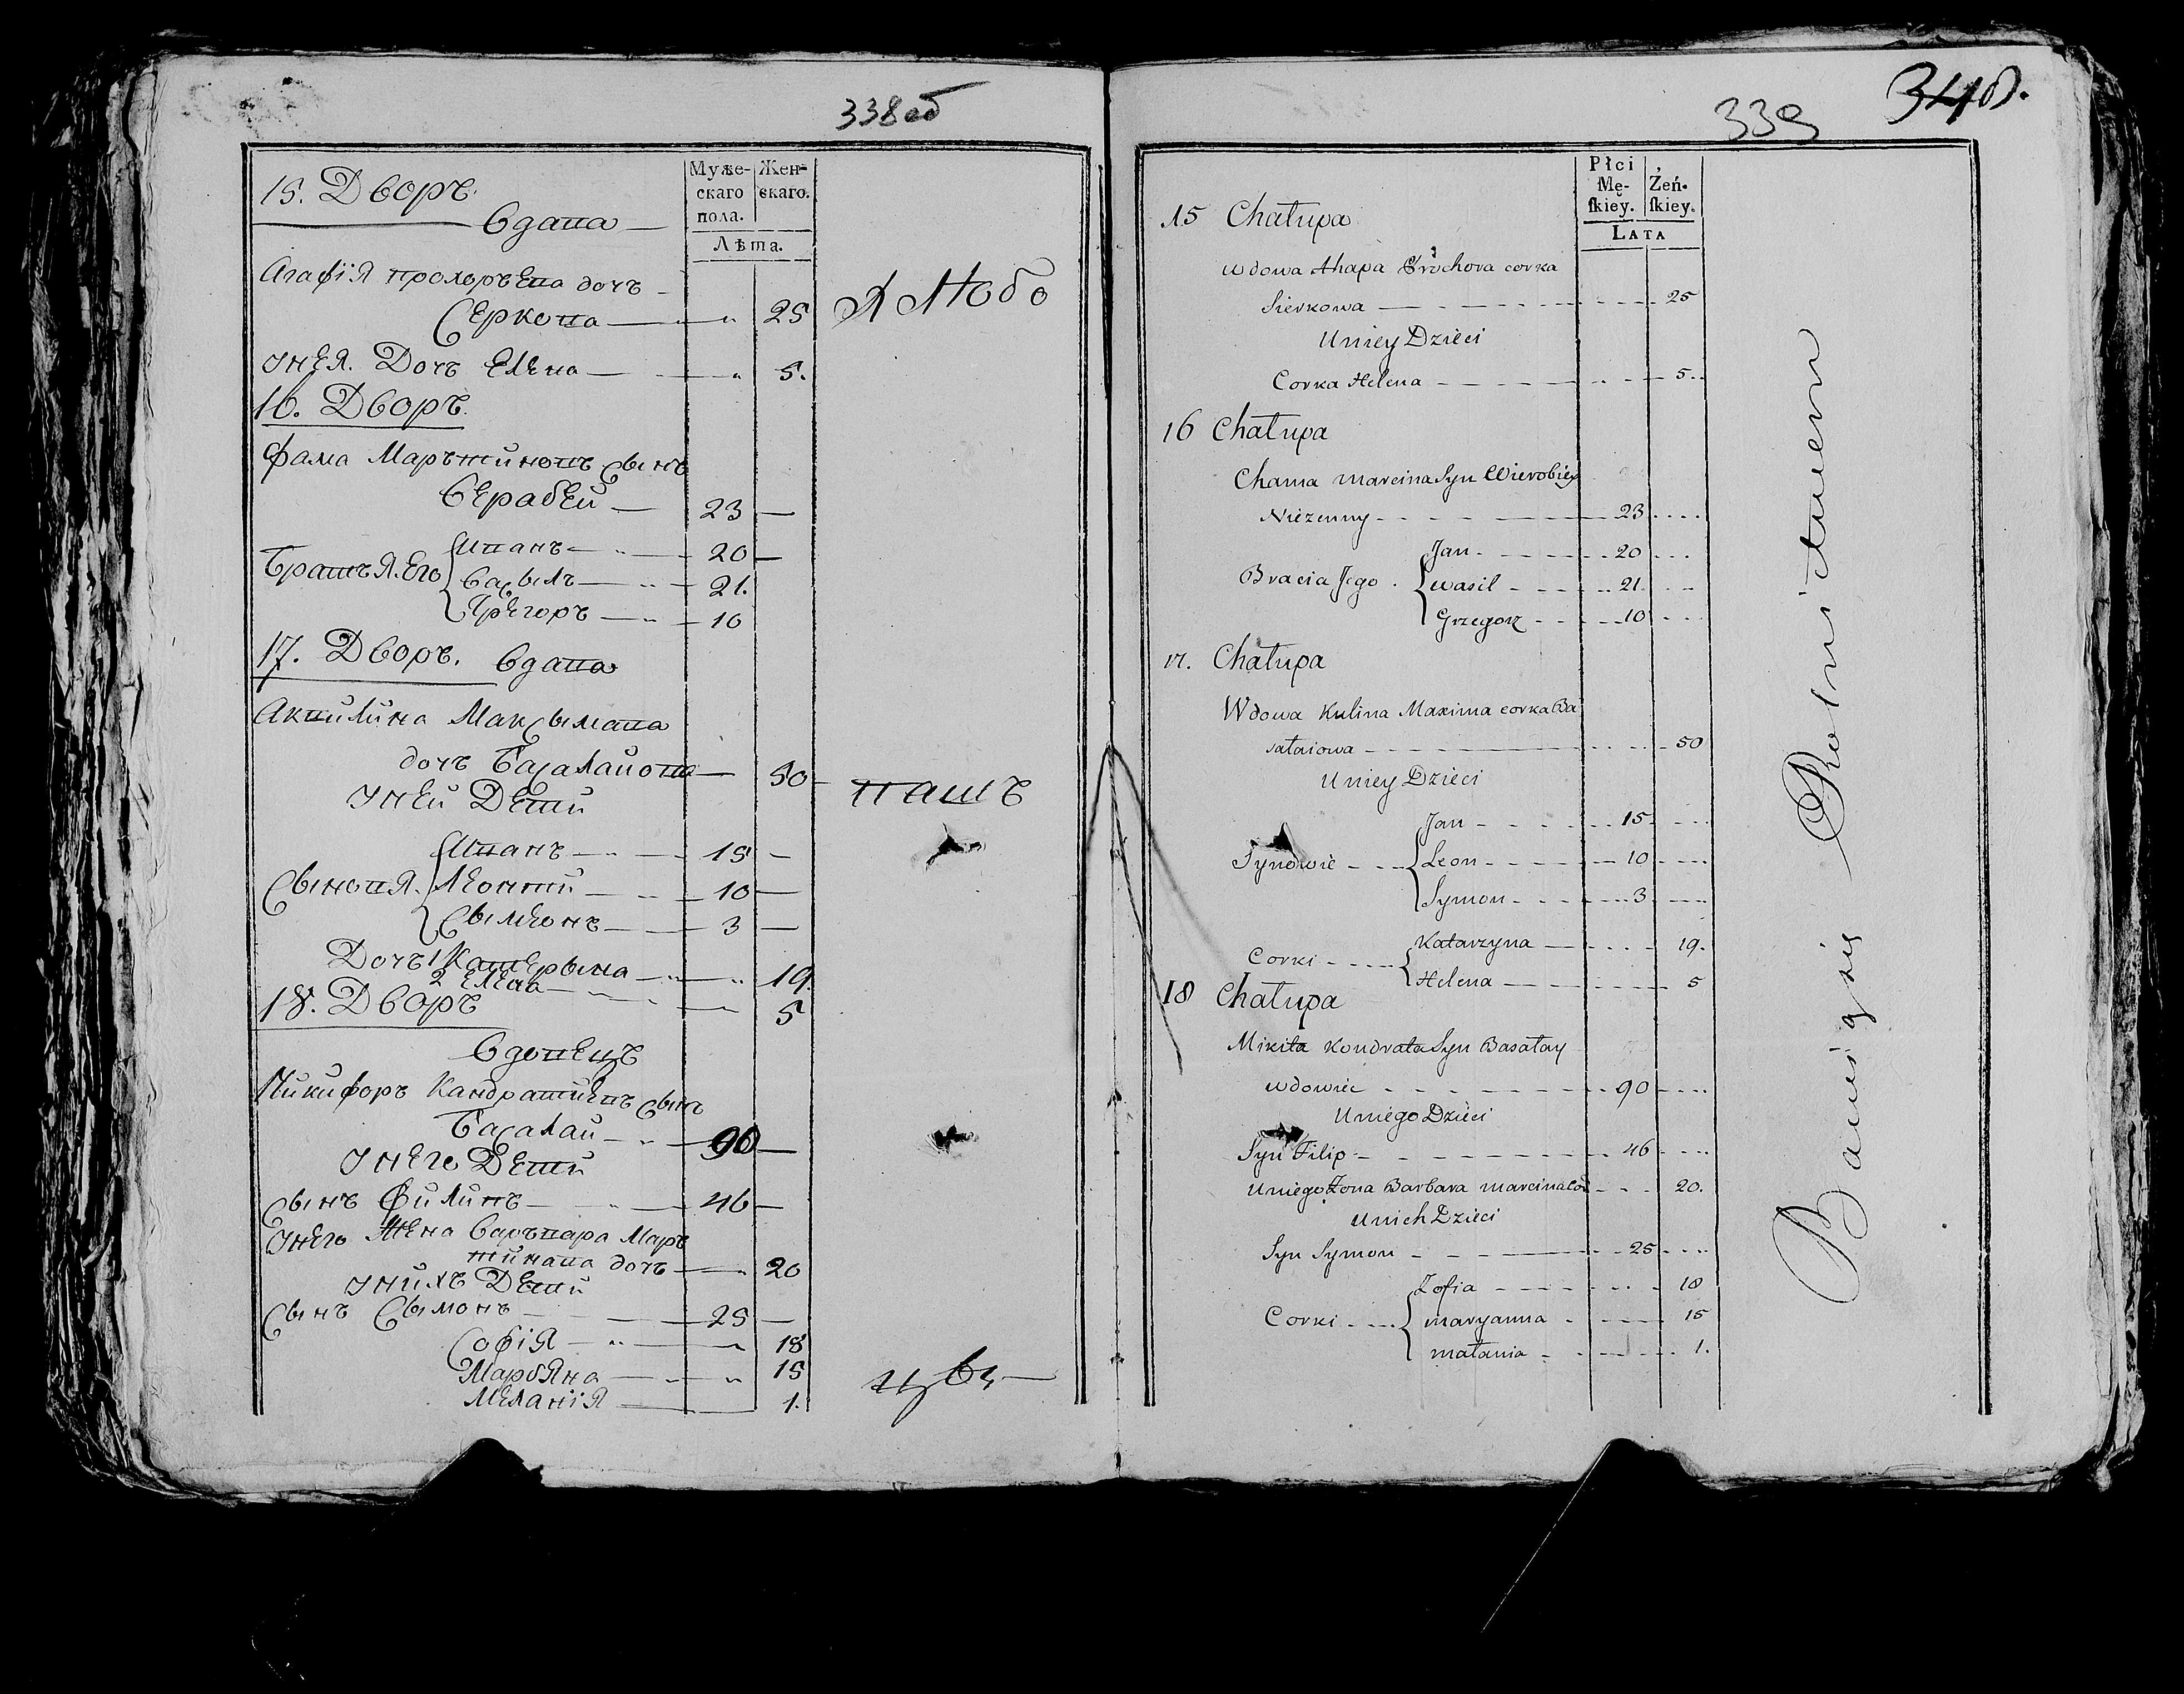 338об
Муже-
скаго
пола.
Жен-
скаго.
Лѣта.
15. Дворъ.
Вдава
Агафія Прохоръева дочъ
Серкова 25
Я Любо
Унея. Дочъ Елена 5.
16. Дворъ.
Фама Марътиновъ сынъ
Верабей 23
Братъя. Его
Иванъ 20
Васыль 21.
Грегоръ 10
17. Дворъ. Вдава
Аквилина Максымава
дочъ Басалаиова 50
вашъ
Уней Дети
Сыновя.
Иванъ 15
Леонтий 10
Сымеонъ 3
Дочъ 1 Катерына 19.
2 Елена 5
18. Дворъ
Вдовецъ
Никифоръ Кандратиевъ сынъ
Басалай 90
Унего Дети
Сынъ Филипъ 46
Унего Жена Варъвара Маръ
тинава дочъ 20
Унихъ Дети
Сынъ Сымонъ 25
Софія 18
Маръяна 15
Меланія 1.
339
340.
Płci
Mę-
ſkiey.
Żeń-
ſkiey.
LATA
15 Chałupa
Wdowa Ahapa Prochora corka
Sierkowa 25
Uniey Dzieci
Corka Helena 5
16 Chałupa
Chama Marcina Syn Wierobiey
Niezenny 23
Bracia Jego
Jan 20
Wasil 21
Grzegorz 10
17. Chałupa
Wdowa Kulina Maxima corka Ba
sałaiowa 50
Uniey Dzieci
Synowie
Jan 15
Leon 10
Symon 3
Corki
Katarzyna 19.
Helena 5
18 Chałupa
Mikita Kondrata Syn Basałay
wdowiec 90
Uniego Dzieci
Syn Filip 46
Uniego Zona Barbara Marcina co 20.
Unich Dzieci
Syn Symon 25
Corki
Zofia 18
Maryanna 15
Małania 1.